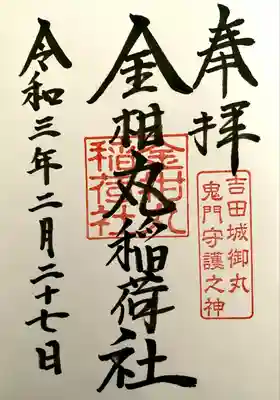 奉拝
吉田城御丸
鬼門守護之神
金柑丸稲荷社
金柑丸
稲荷社
令和三年二月二十七日